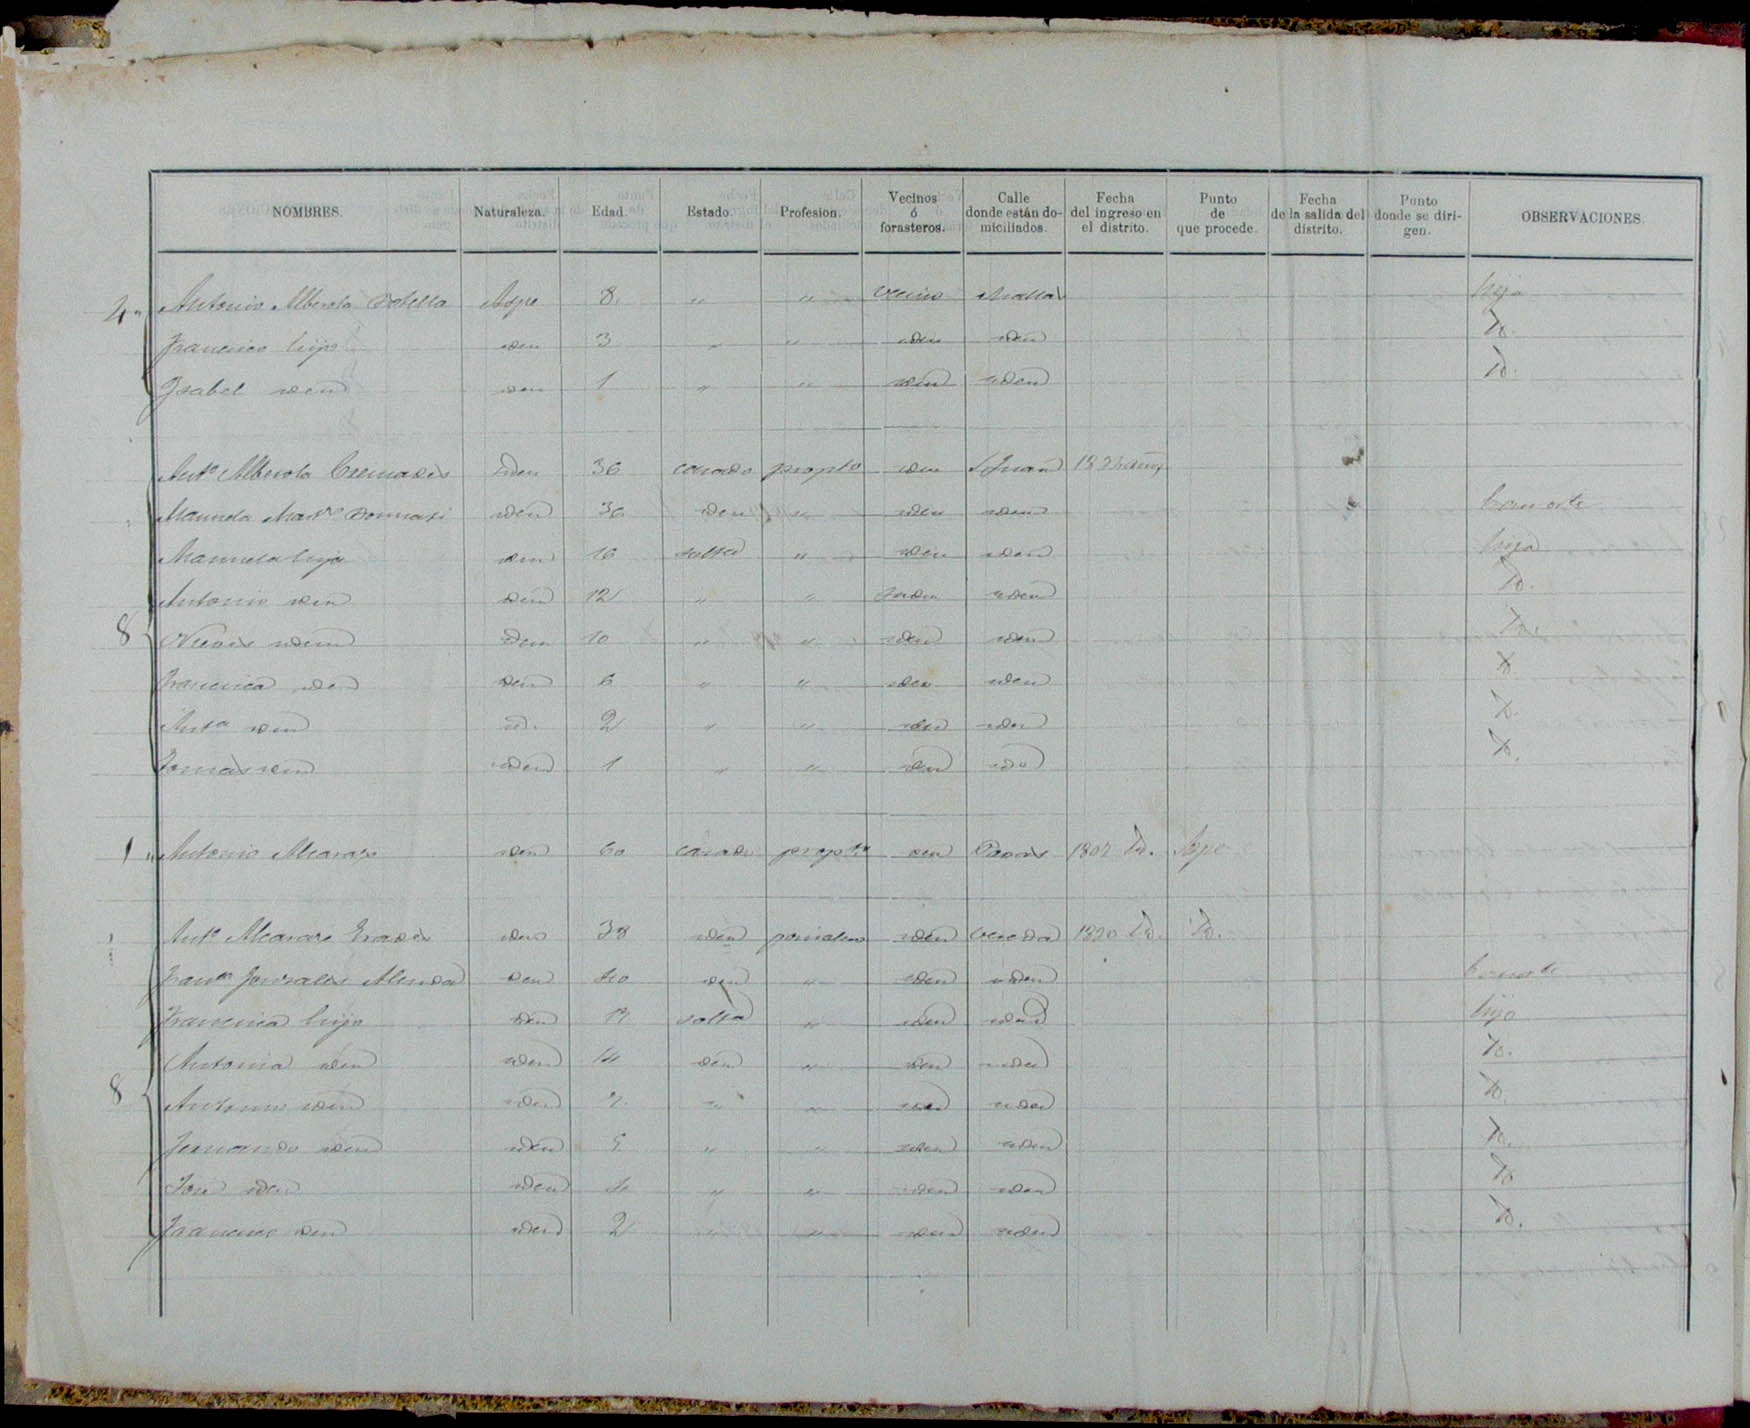 NOMBRES. Naturaleza. Edad. Estado. Profesion. Vecinos ó forasteros. Calle donde están domiciliados. Fecha del ingreso en el distrito. Punto de que procede. Fecha de la salida del distrito. Punto donde se dirigen. OBSERVACIONES.
4 Antonio Alberola Botella Aspe 8 " " Vecino hijo
Francisco hijo iden 3 " " iden iden Id.
Isabel iden iden 1 " " iden iden Id.
Antº Alberola Cremades iden 36 casado propto iden S Juan
Manuela iden 36 iden " iden iden Consorte
Manuela hija iden 16 solta " iden iden hija
Antonio iden iden 12 " " iden iden Id.
8 Nieves iden iden 10 " " iden iden Id.
Francisca iden iden 6 " " iden iden Id.
Antª iden id. 2 " " iden iden Id.
Tomas iden iden 1 " " iden id Id.
1 " Antonio Alcaraz iden 60 casado iden 1807 Id. Aspe
Antº Alcaraz iden 38 iden iden Vereda 1820 Id. Id.
Franca Gonzales iden 40 iden " iden iden Consorte
Francisca hija iden solta " iden iden hija
Antonia iden iden 14 iden " iden iden Id.
8 Antonio iden iden 7 " " iden iden Id.
Fernando iden iden 5 " " iden iden Id.
José iden iden 4 " " iden iden Id
Francisco iden iden 2 " " iden iden Id.